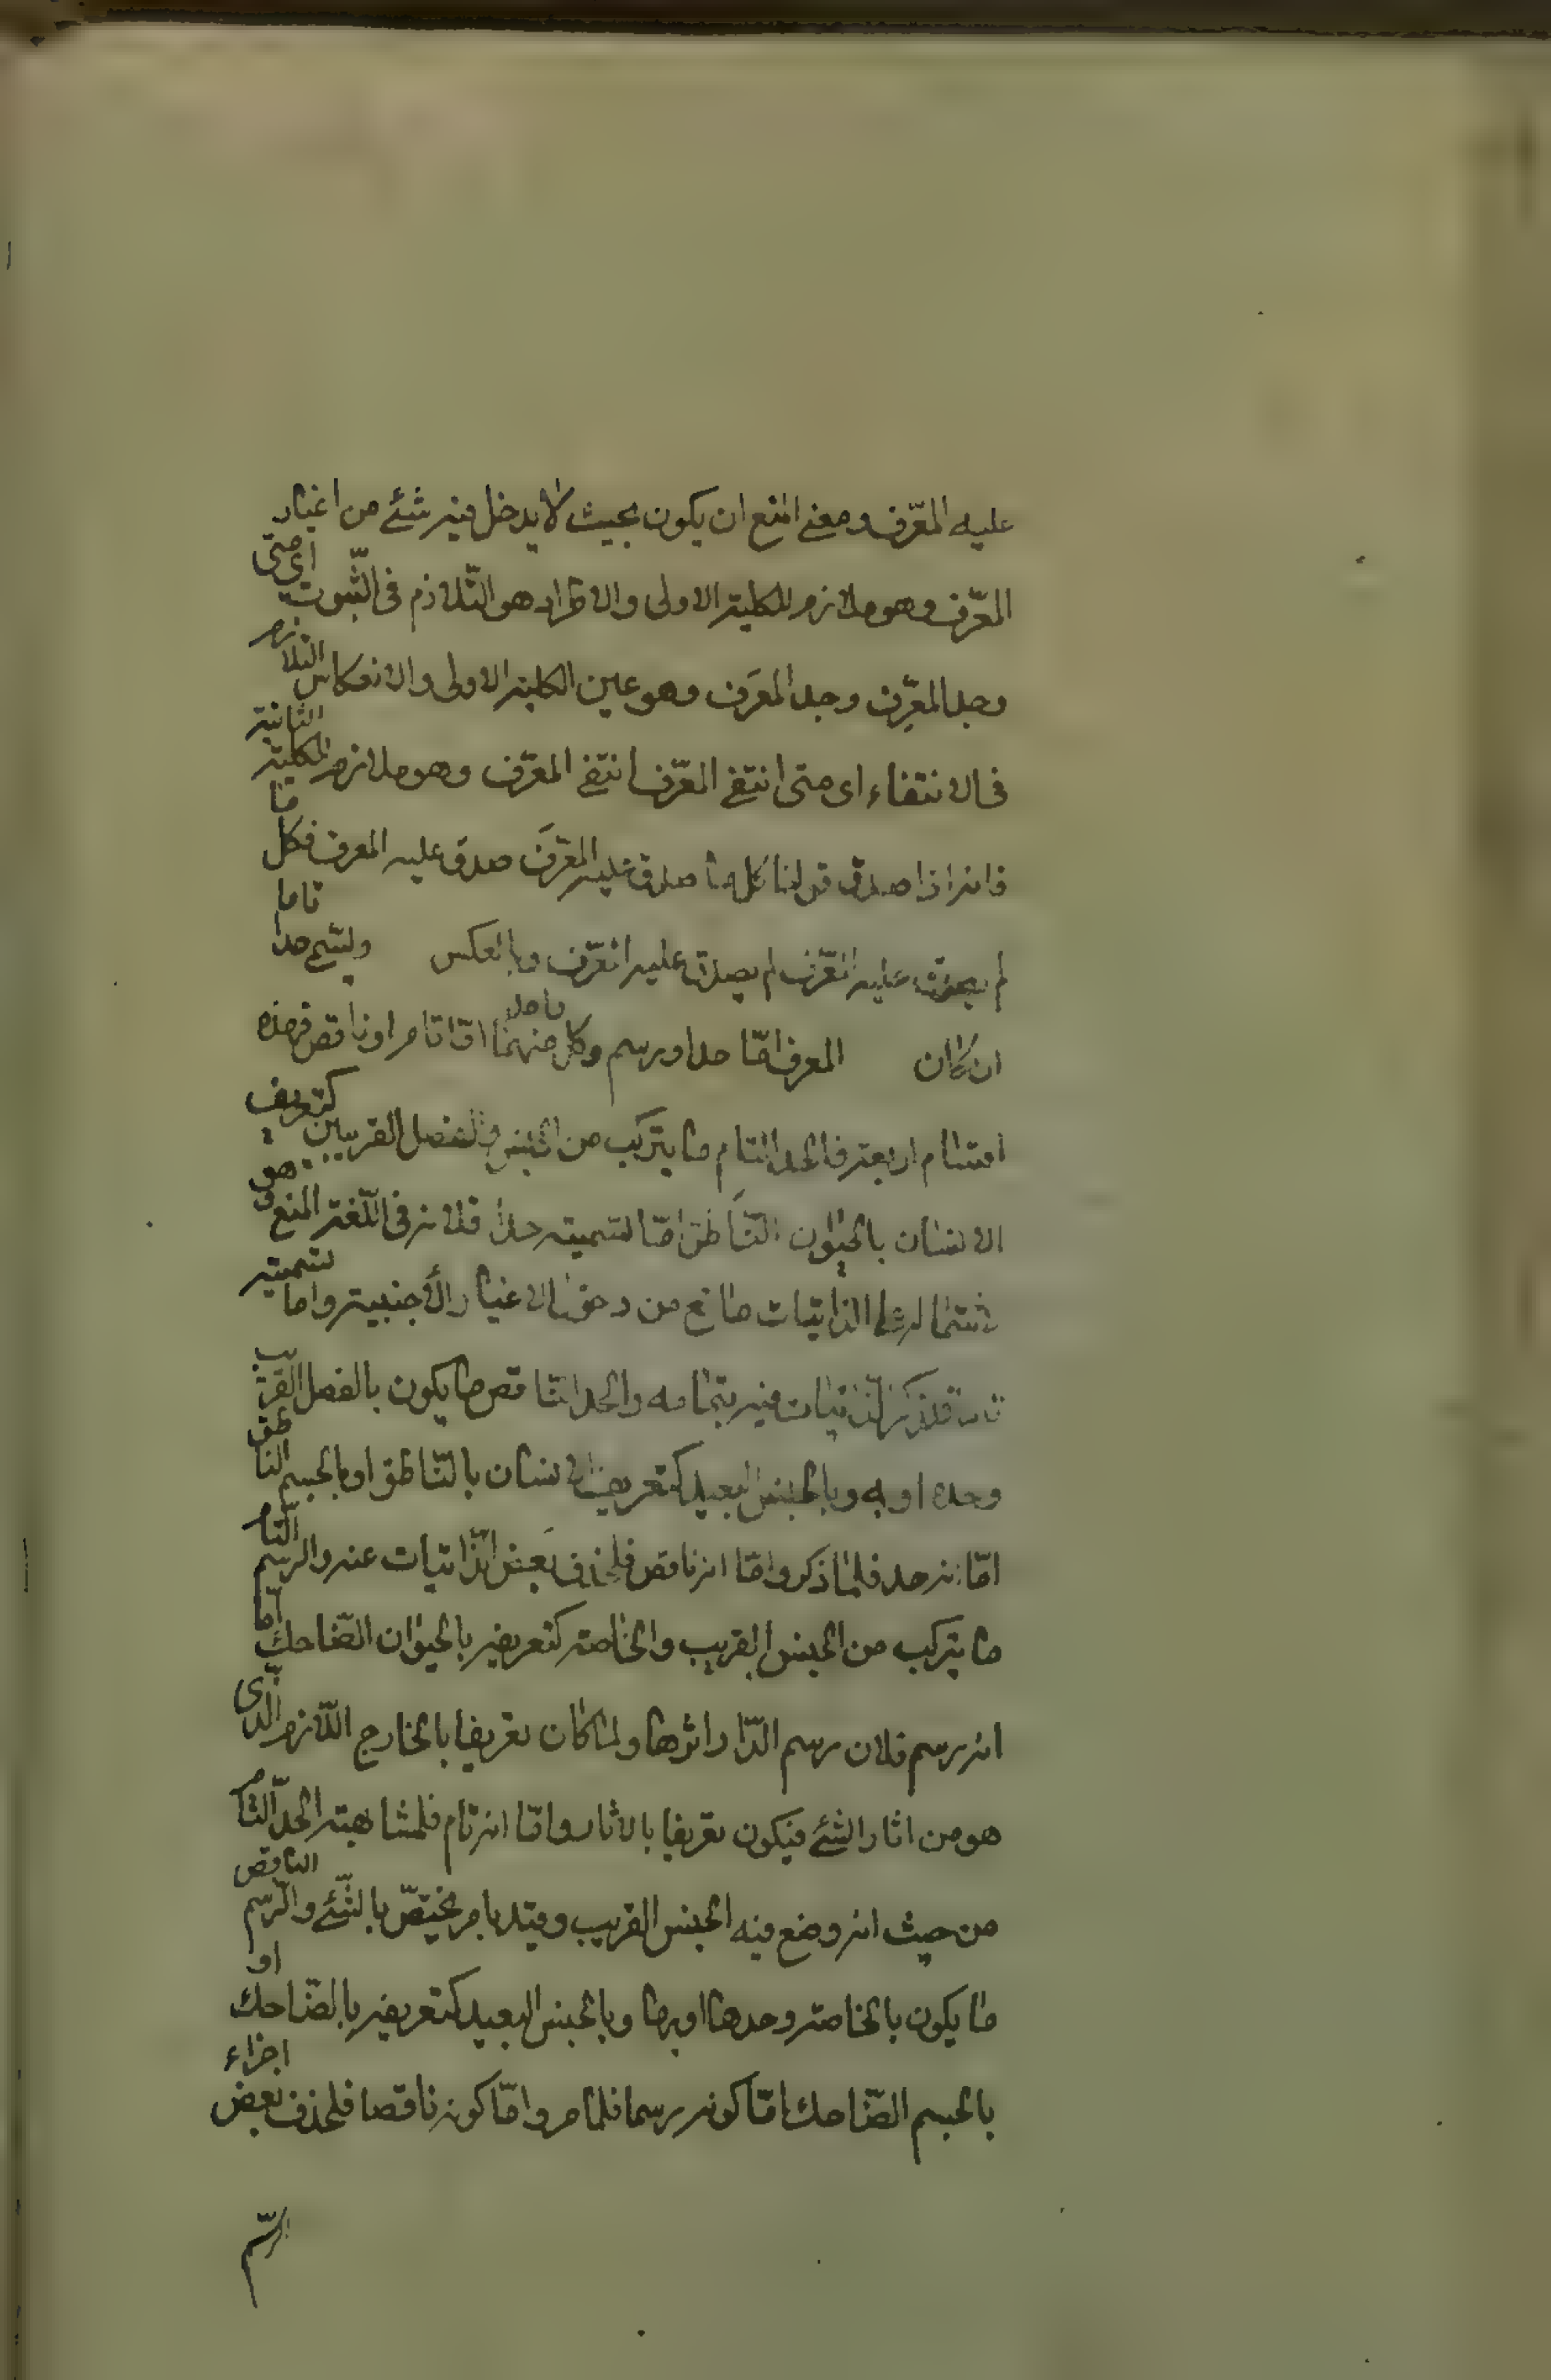 عليه المعرّف ومعنى المنع ان يكون بحيث لا يدخل فيه شئ من اغيار
المعرّف وهو ملازم للكلية الاولى والاطراد هو التّلازم فى الثّبوت اى متى
وجد المعرِّف وجد المعرَف وهو عين الكلية الاولى والانعكاس التلازم
فى الانتفاء اى متى انتفى المعرّف انتفى المعرّف وهو ملازم للكلية الثانية
فانه اذا صدق قولنا كل ما صدق عليه المعرَّف صدق عليه المعرف فكل ما
لم يصدق عليه المعّرف لم يصدق عليه المعّرف وبالعكس ويسمى حدا تاما
ان كان المعرف امّا حد او رسم وكل واحد منهما امّا تام او ناقص فهذه
اقسام اربعة فالحد التام ما يتركب من الجنس والفصل القريبين كتعريف
الانسان بالحيوان النّاطق امّا تسميته حدا فلانه فى اللّغة المنع وهو
لاشتماله على الذاتيات مانع من دخول الاغيار الأجنبية واما تسميته
تاما فلذكر الذّاتيات فيه بتمامه والحد النّاقص ما يكون بالفصل القريب
وحده او به وبالجنس البعيد كتعريف الانسان بالنّاطق او بالجسم الناطق
امّا انه حد فلما ذكر وامّا انه ناقص فلحذف بعض الذّاتيات عنه والرسم التّام
ما يتركب من الجنس القريب والخاصة كتعريفه بالحيوان الضّاحك امّا
انه رسم فلان رسم الدّار اثرها ولما كان تعريفا بالخارج اللّازم الّذى
هو من اثار الشئ فيكون تعريفا بالاثار وامّا انه تام فلمشابهته الحدّ التّام
من حيث انه وضع فيه الجنس القريب وقيد بامر يختصّ بالشّئ والرّسم الناقص
ما يكون بالخاصة وحدها او بها وبالجنس البعيد كتعريفه بالضّاحك او
بالجسم الضّاحك امّا كونه رسما فلما مر وامّا كونه ناقصا فلحذف بعض اجزاء
الرّسم